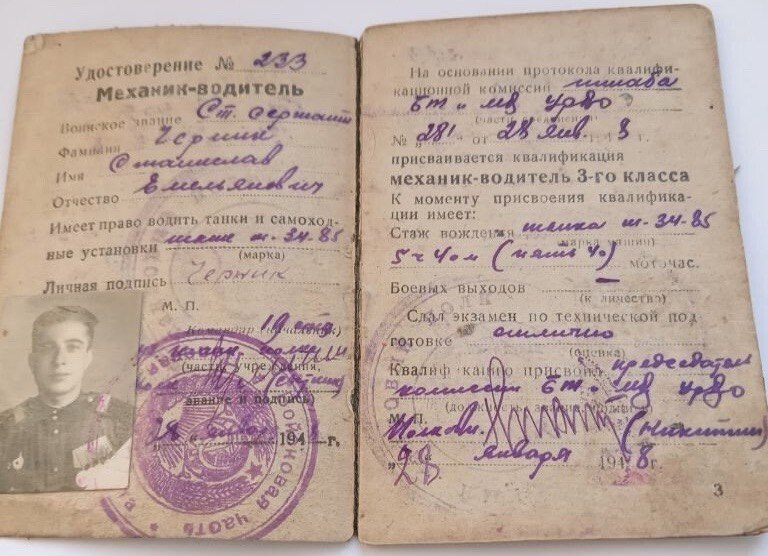 Удостоверение № 233
Механик-водитель
Воинское звание Ст. сержант
Фамилия Черник
Имя Станислав
Отчество Емельянович
Имеет право водить танки и самоход-
ные установки танк т-34-85
(марка)
Личная подпись Черник
М. П.
Командир (начальник)
(часть, учреждения,
звание и подпись)
„28 января 194 г.
ВОЙСКОВАЯ ЧАСТЬ
На основании протокола квалифи-
кационной комиссии штаба
Бт и МВ УрВО
№ 281 от 28 янв. 194 г.
присваивается квалификация
механик-водитель 3-го класса
К моменту присвоения квалифика-
ции имеет:
Стаж вождения танка т-34-85
(марка машин)
5 ч 40 м (пять 40) мото-час.
Боевых выходов —
(количество)
Сдал экзамен по технической под
готовке отлично
(оценка)
Квалификацию присвоил председатель
комиссии Бт и МВ УрВО
М. П.
Полковн. (Никитин)
„28 января 1948 г.
3